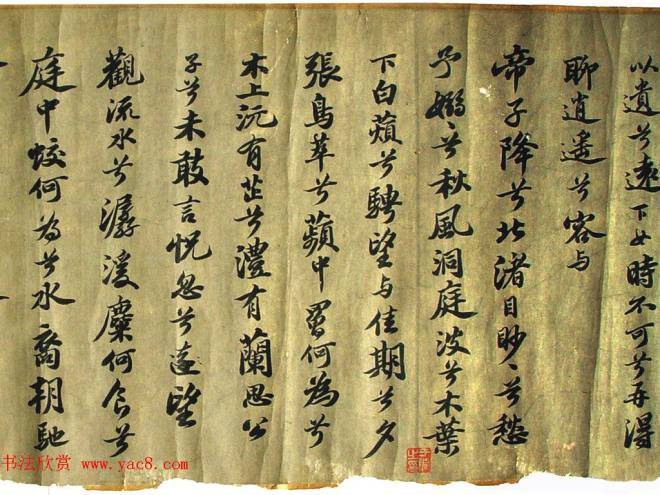 以遺兮遠下女時不可兮再得
聊逍遥兮容与
帝子降兮北渚目眇〻兮愁
予嫋〻兮秋風洞庭波兮木葉
下白蘋兮騁望与佳期兮夕
張鳥萃兮蘋中罾何為兮
木上沅有芷兮澧有蘭思公
子兮未敢言怳忽兮遠望
觀流水兮潺湲麋何食兮
庭中蛟何為兮水裔朝馳
书法欣赏 www.yac8.com